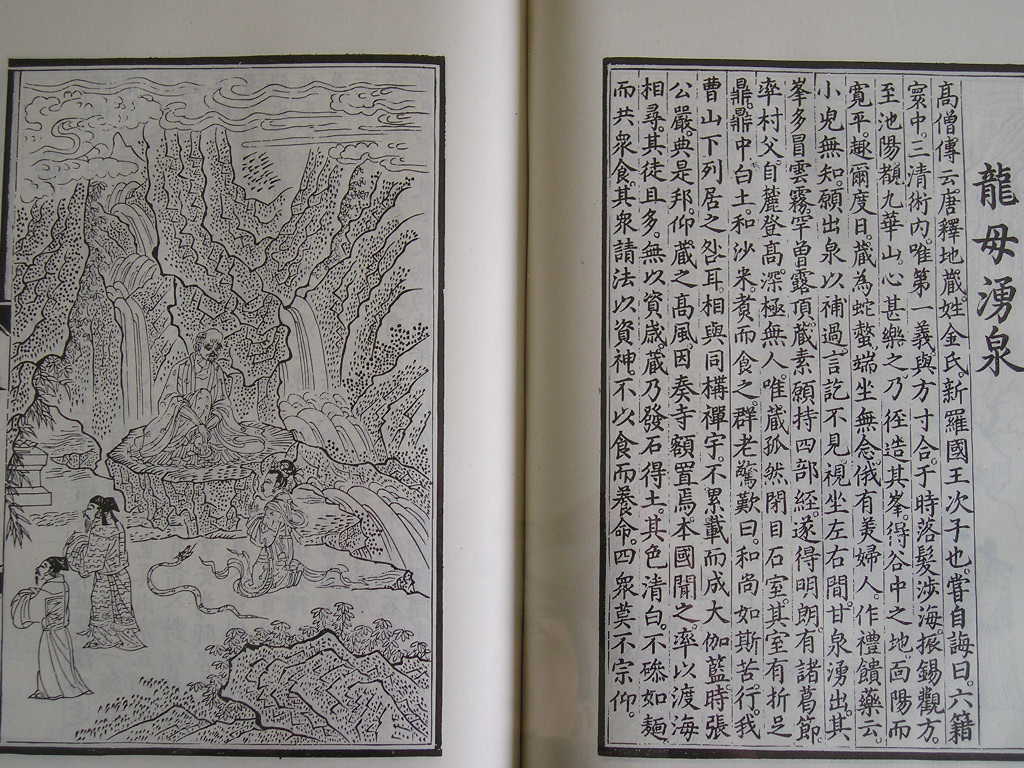 龍母湧泉
高僧傳云唐釋地藏。姓金氏。新羅國王次子也。嘗自誨曰。六籍
寰中。三清術內。唯第一義與方寸合乎。時落髮涉海。振錫觀方。
至池陽覩九華山。心甚樂之。乃徑造其峯。得谷中之地。面陽而
寬平。趣爾度日。藏為蛇螫。端坐無念。俄有美婦人。作禮饋藥云。
小兒無知。願出泉以補過。言訖不見。視坐左右間。甘泉湧出。其
峯多冒雲霧。罕曾露頂。藏素願持四部經。遂得明朗。有諸葛節
率村父自麓登高。深極無人。唯藏孤然閉目石室。其室有折足
鼎。鼎中白土。和沙米煑而食之。群老驚歎曰。和尚如斯苦行。我
曹山下列居之咎耳。相與同構禪宇。不累載而成大伽藍。時張
公嚴。典是邦。仰藏之高風。因奏寺額置焉。本國聞之。率以渡海
相尋。其徒且多。無以資歲。藏乃發石得土。其色清白。不磣如麵
而共衆食。其衆請法以資神。不以食而養命。四衆莫不宗仰。